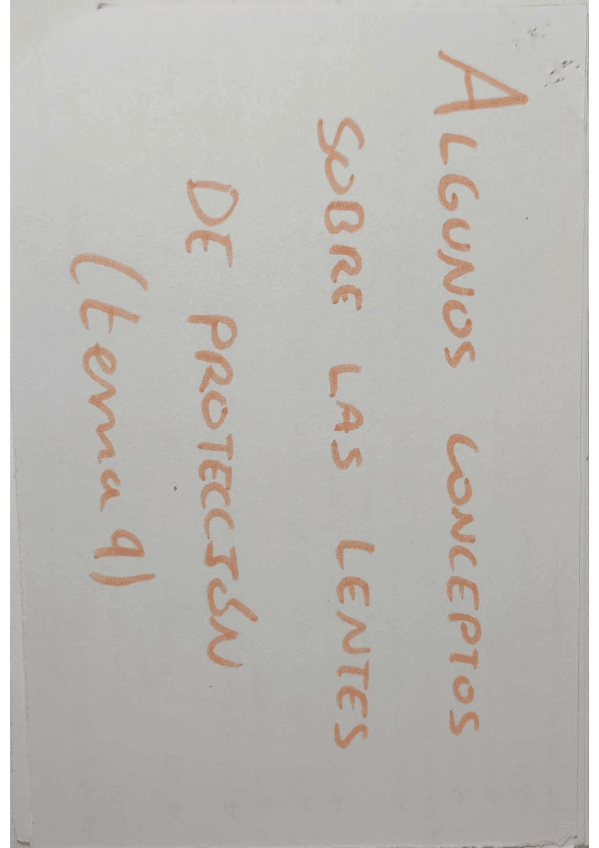 ALGUNOS CONCEPTOS
SOBRE LAS LENTES
DE PROTECCIÓN
(tema 9)